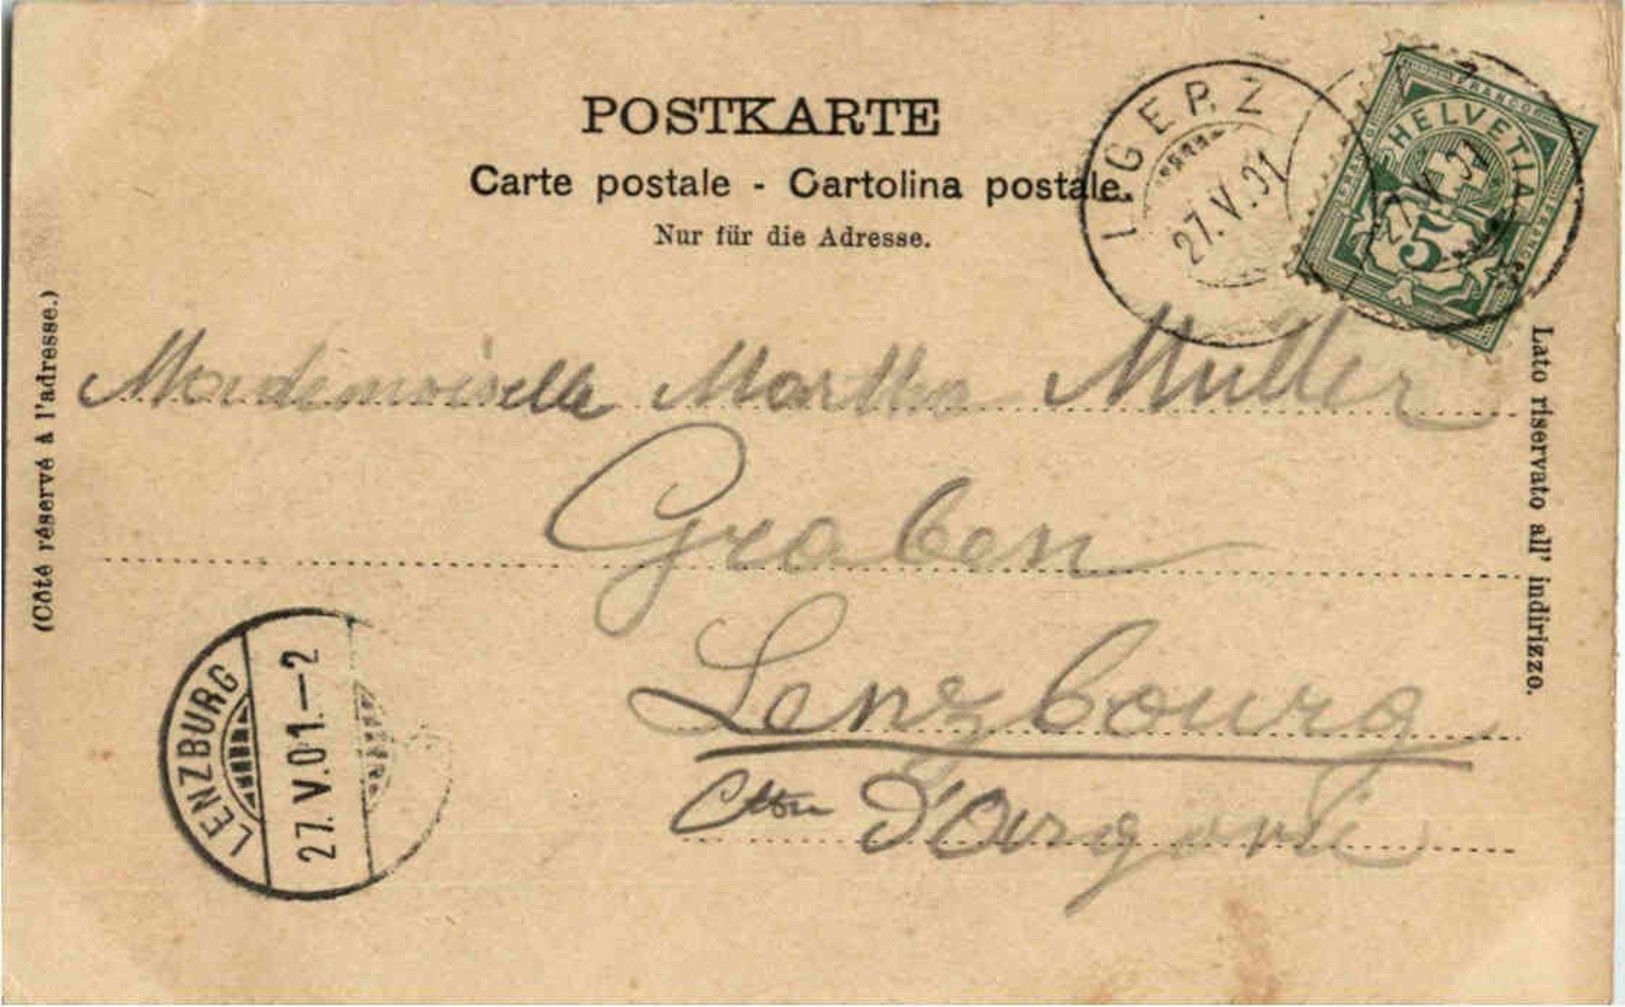 POSTKARTE
Carte postale - Cartolina postale.
Nur für die Adresse.
LIGERZ
27.V.01
HELVETIA
FRANCO
5
27.V.01
(Côté réservé à l'adresse.)
Lato riservato all' indirizzo.
Mademoiselle Martha Muller
Graben
Lenzbourg
Cton d'Argovie
LENZBURG
27.V.01.-2